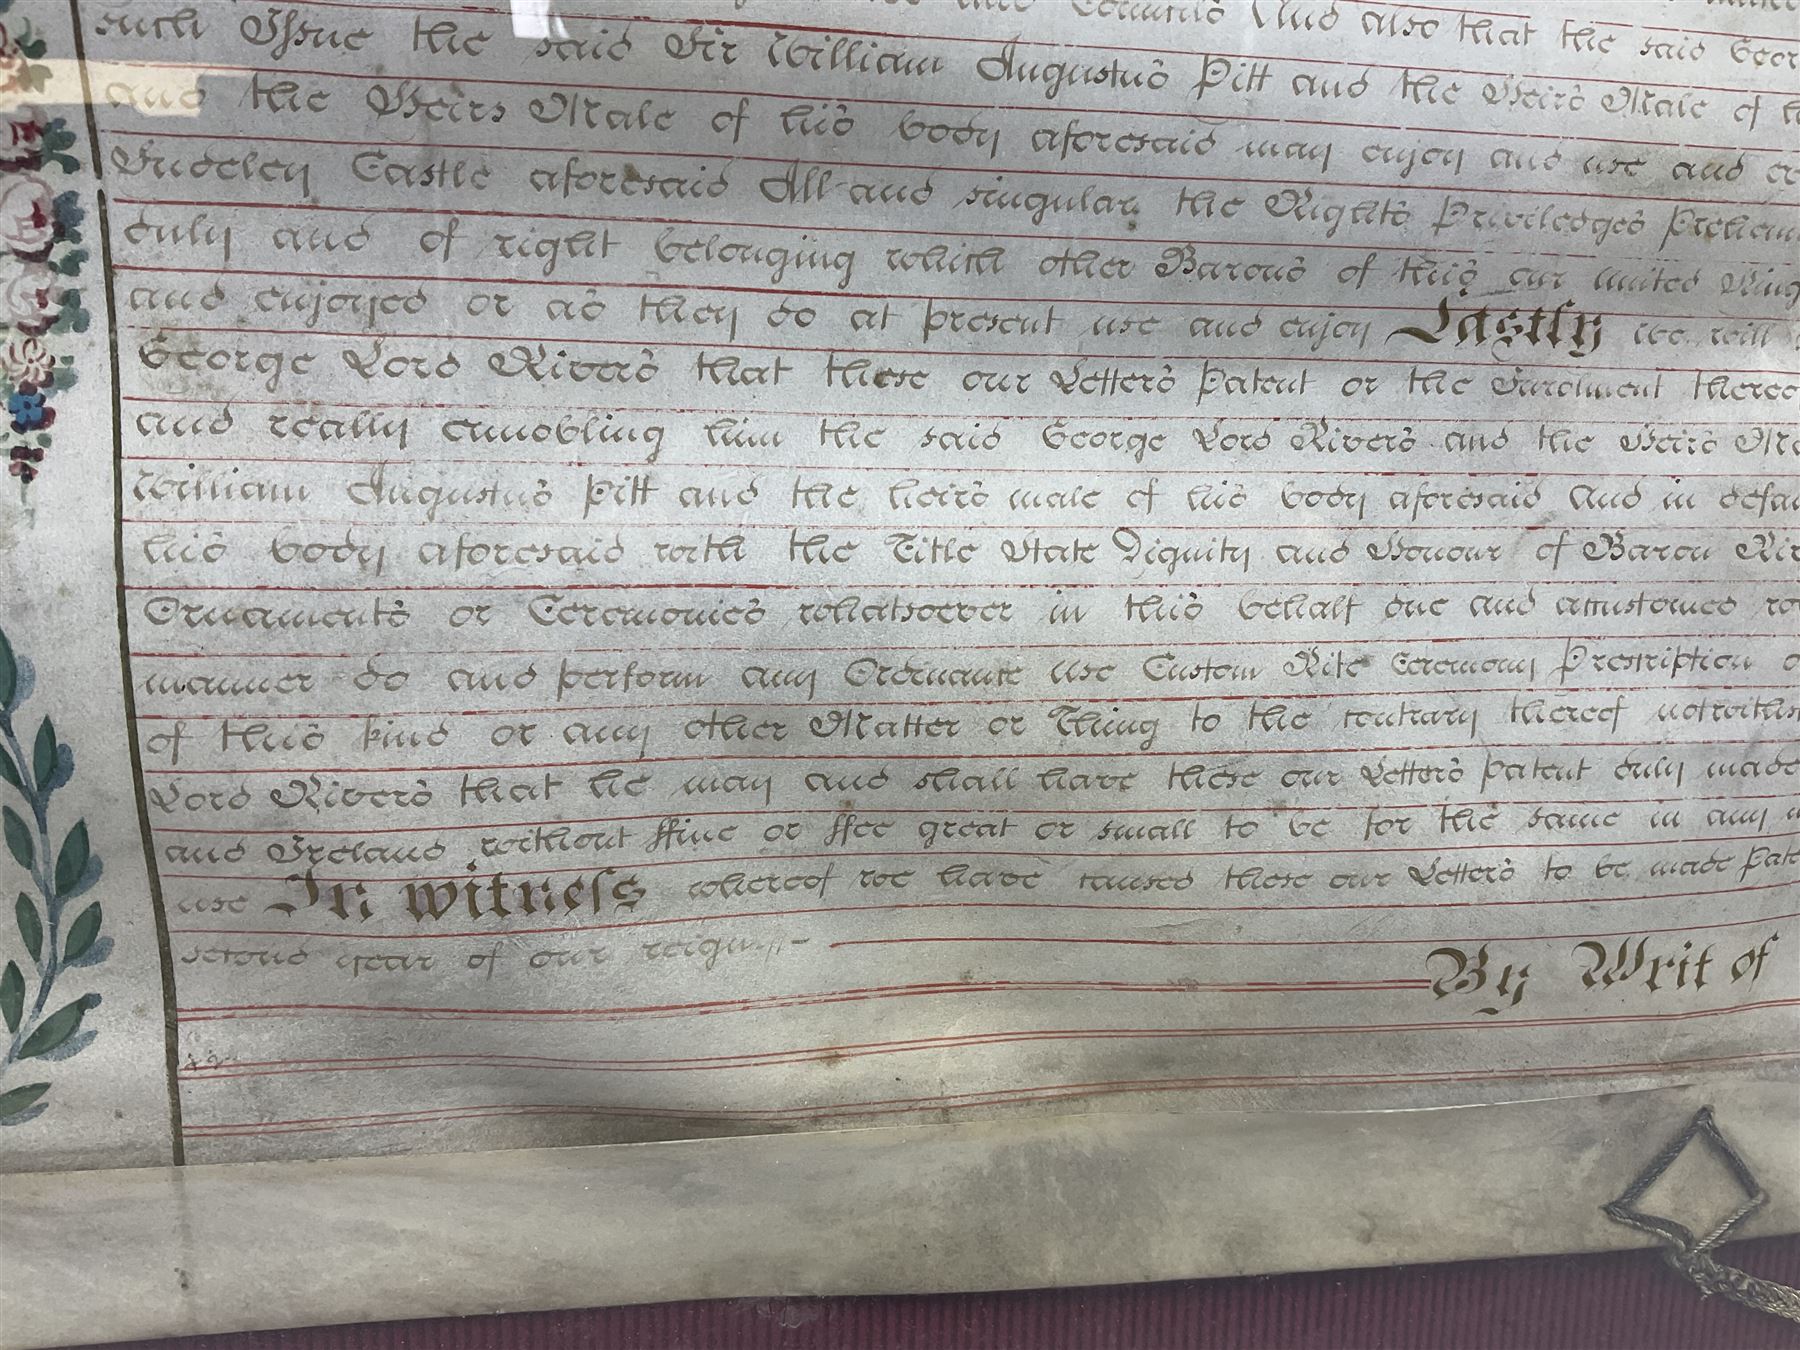 and Councils And also that the said Geor
such Issue the said Sir William Augustus Pitt and the Heirs Male of h
and the Heirs Male of his body aforesaid may enjoy and use and
Sudeley Castle aforesaid All and singular the Rights Priviledges Prehem
duly and of right belonging which other Barons of this our united King
and enjoyed or as they do at present use and enjoy Lastly we will
George Lord Rivers that these our Letters Patent or the Inrolment there
and really ennobling him the said George Lord Rivers and the Heirs Ma
William Augustus Pitt and the heirs male of his body aforesaid And in defau
his body aforesaid with the Title State Dignity and Honour of Baron Riv
Ornaments or Ceremonies whatsoever in this behalf due and accustomed
manner do and perform any Ordinance use Custom Rite Ceremony Prescription
of this kind or any other Matter or Thing to the contrary thereof notwithst
Lord Rivers that he may and shall have these our Letters Patent duly made
and Ireland without ffine or ffee great or small to be for the same in any
use In witness whereof we have caused these our Letters to be made Pate
second year of our reign
By Writ of